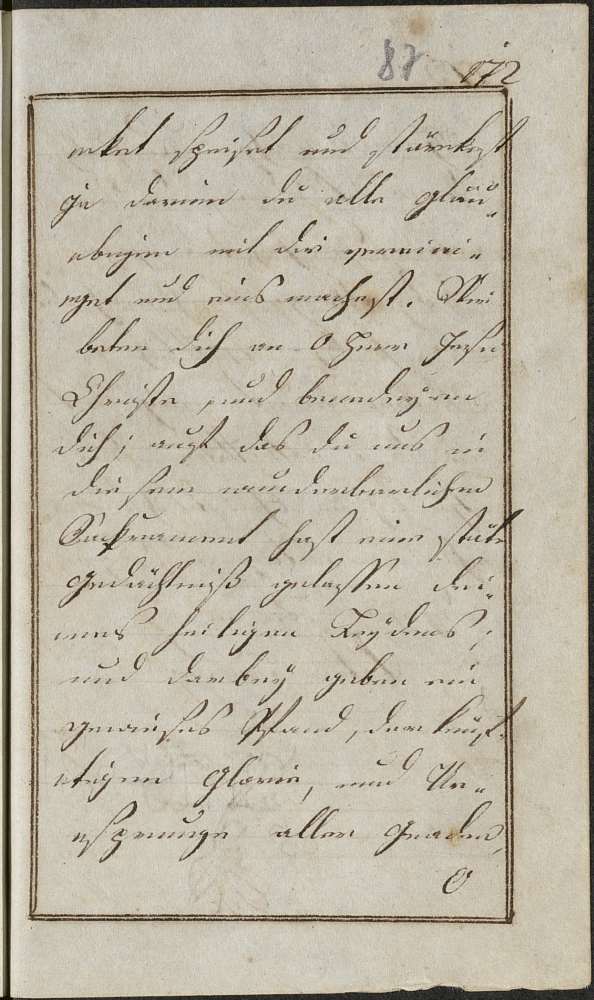 87 172
erket speiset und stärckest
ja darinn du alle gläu„
ubigen mit dir vereini„
niget und eins machest. Wir
beten dich an O Herr Jesu
Christe, und benedeyen
dich; auch das du uns in
diesem wunderbarlichen
Sackrament hast eine stäte
gedächtniß gelassen dei„
ines heiligen Leydens;
und darbey geben ein
gewisses Pfand, der künf„
ftigen Glorie, und Ur„
rsprunge aller Gnaden,
O